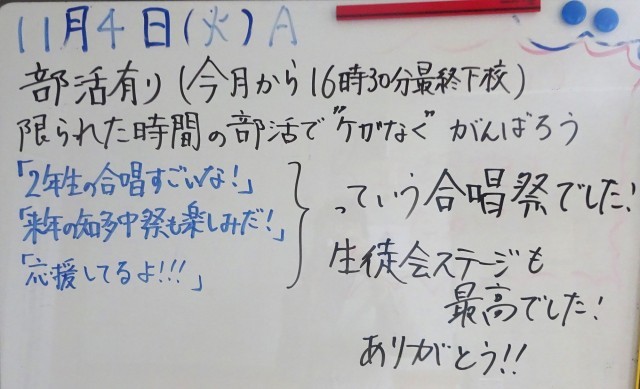 11月4日(火)A
部活有り(今月から16時30分最終下校)
限られた時間の部活で"ケガなく"がんばろう
「2年生の合唱すごいな!」
「来年の知多中祭も楽しみだ!」
「応援してるよ!!!」
っていう合唱祭でした!
生徒会ステージも
最高でした!
ありがとう!!